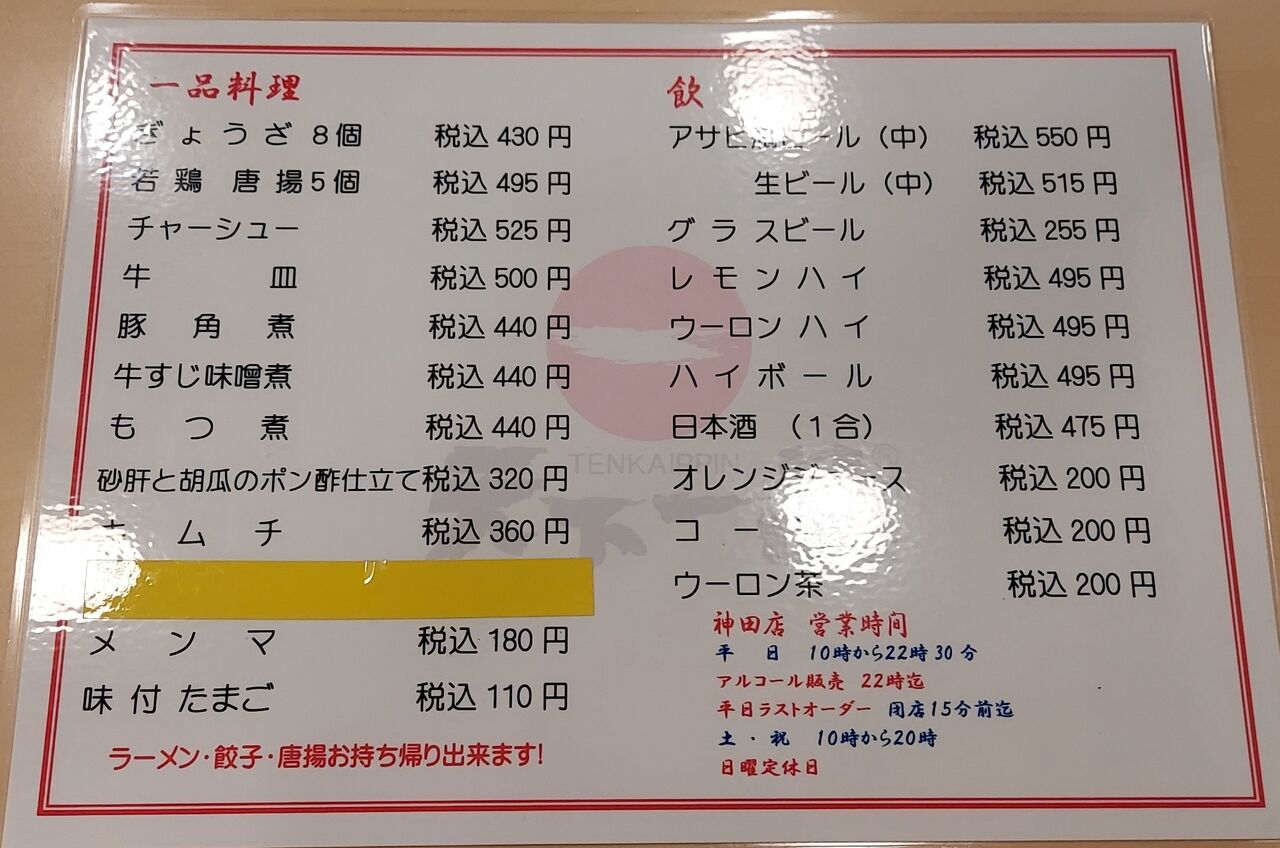 一品料理
ぎょうざ 8個 税込 430 円
若鶏 唐揚5個 税込 495 円
チャーシュー 税込 525 円
牛皿 税込 500 円
豚角煮 税込 440 円
牛すじ味噌煮 税込 440 円
もつ煮 税込 440 円
砂肝と胡瓜のポン酢仕立て 税込 320 円
キムチ 税込 360 円
メンマ 税込 180 円
味付たまご 税込 110 円
ラーメン・餃子・唐揚お持ち帰り出来ます!
飲
アサヒ瓶ビール（中） 税込 550 円
生ビール（中） 税込 515 円
グラスビール 税込 255 円
レモンハイ 税込 495 円
ウーロンハイ 税込 495 円
ハイボール 税込 495 円
日本酒 （1合） 税込 475 円
オレンジジュース 税込 200 円
コー 税込 200 円
ウーロン茶 税込 200 円
神田店 営業時間
平日 10時から22時30分
アルコール販売 22時迄
平日ラストオーダー 閉店15分前迄
土・祝 10時から20時
日曜定休日
TENKAIPPIN